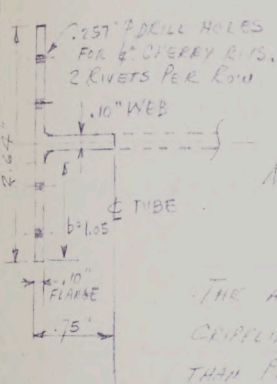 .257" φ DRILL HOLES
FOR ¼" CHERRY RIVS.
2 RIVETS PER ROW
.10" WEB
2.64"
℄ TUBE
b=1.05
.10"
FLANGE
.75"
- THE
CRIPPLI
THAN